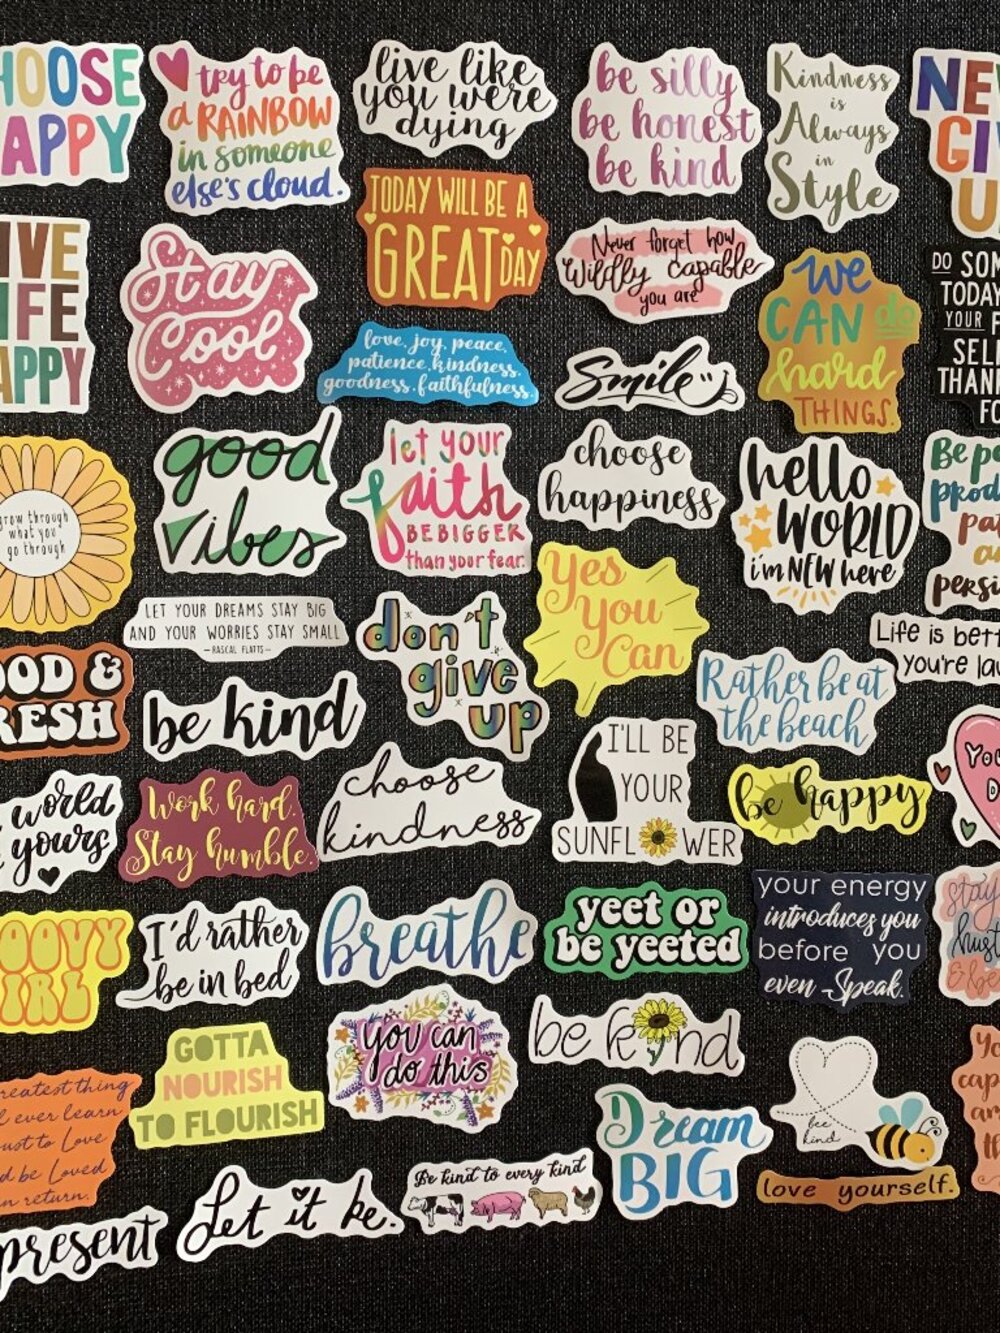 HOOSE
APPY
try to be
a RAINBOW
in someone
else's cloud.
live like
you were
dying
be silly
be honest
be kind
Kindness
is
Always
in
Style
NE
GI
U
IVE
IFE
APPY
Stay
Cool
TODAY WILL BE A
GREAT DAY
love, joy, peace,
patience, kindness,
goodness, faithfulness,
Never forget how
Wildly capable
you are
Smile
we
CAN do
hard
THINGS.
DO SOM
TODAY
YOUR F
SEL
THAN
FO
grow through
what you
go through
good
vibes
let your
faith
BE BIGGER
than your fear.
choose
happiness
hello
WORLD
i'm NEW here
Be po
prod
pa
a
persi
LET YOUR DREAMS STAY BIG
AND YOUR WORRIES STAY SMALL
- RASCAL FLATTS -
don't
give
up
Yes
You
Can
Life is bett
you're lau
OOD &
RESH
be kind
Rather be at
the beach
You
D
world
yours
Work hard.
Stay humble.
choose
kindness
I'LL BE
YOUR
SUNFL WER
be happy
OOVY
IRL
I'd rather
be in bed
breathe
yeet or
be yeeted
your energy
introduces you
before you
even Speak.
stay
hust
& be
GOTTA
NOURISH
TO FLOURISH
you can
do this
be k nd
bee
kind
Yo
cap
am
th
reatest thing
l ever learn
ust to Love
d be Loved
n return.
Dream
BIG
love yourself.
present
Let it be.
Be kind to every kind